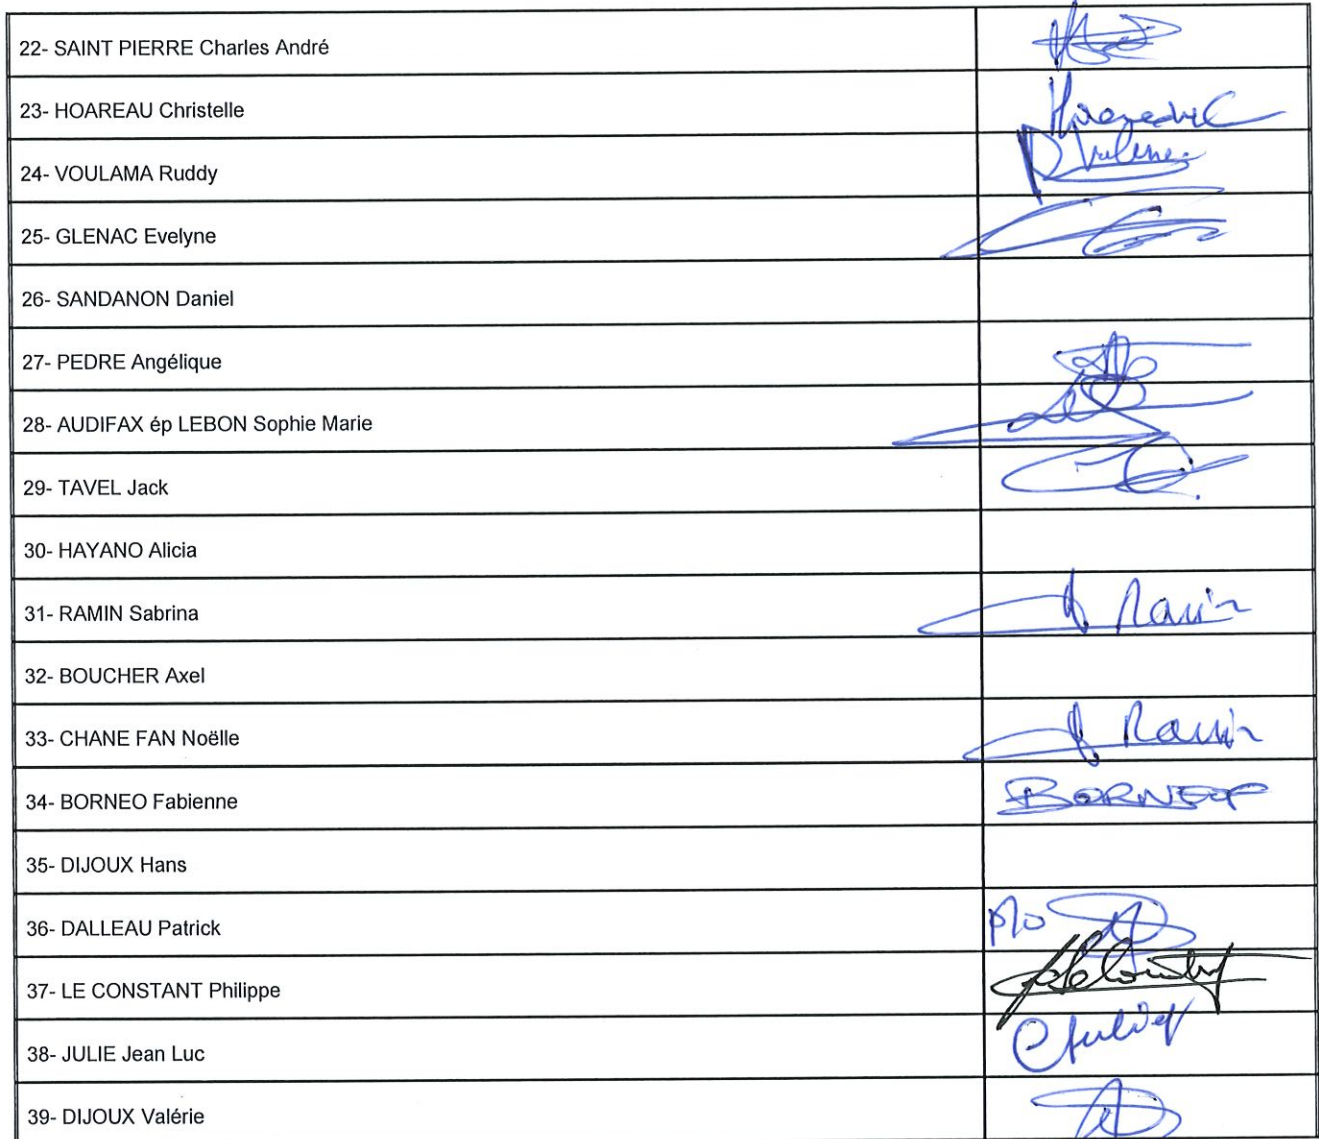 22- SAINT PIERRE Charles André
23- HOAREAU Christelle
24- VOULAMA Ruddy
25- GLENAC Evelyne
26- SANDANON Daniel
27- PEDRE Angélique
28- AUDIFAX ép LEBON Sophie Marie
29- TAVEL Jack
30- HAYANO Alicia
31- RAMIN Sabrina
32- BOUCHER Axel
33- CHANE FAN Noëlle
34- BORNEO Fabienne
35- DIJOUX Hans
36- DALLEAU Patrick
37- LE CONSTANT Philippe
38- JULIE Jean Luc
39- DIJOUX Valérie